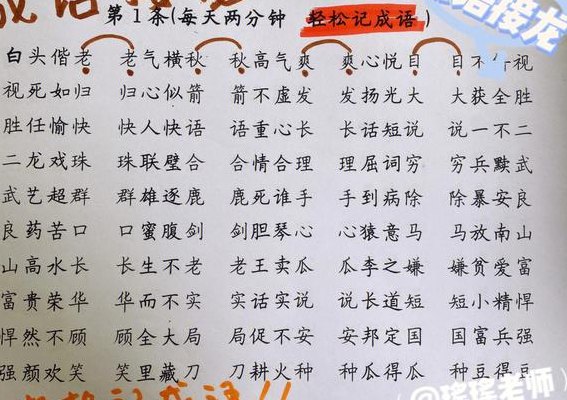 接龙
第1条(每天两分钟 轻松记成语)
白头偕老 老气横秋 秋高气爽 爽心悦目 目不视
视死如归 归心似箭 箭不虚发 发扬光大 大获全胜
胜任愉快 快人快语 语重心长 长话短说 说一不二
二龙戏珠 珠联璧合 合情合理 理屈词穷 穷兵黩武
武艺超群 群雄逐鹿 鹿死谁手 手到病除 除暴安良
良药苦口 口蜜腹剑 剑胆琴心 心猿意马 马放南山
山高水长 长生不老 老王卖瓜 瓜李之嫌 嫌贫爱富
富贵荣华 华而不实 实话实说 说长道短 短小精悍
悍然不顾 顾全大局 局促不安 安邦定国 国富兵强
强颜欢笑 笑里藏刀 刀耕火种 种瓜得瓜 种豆得豆
(@瑶瑶老师)